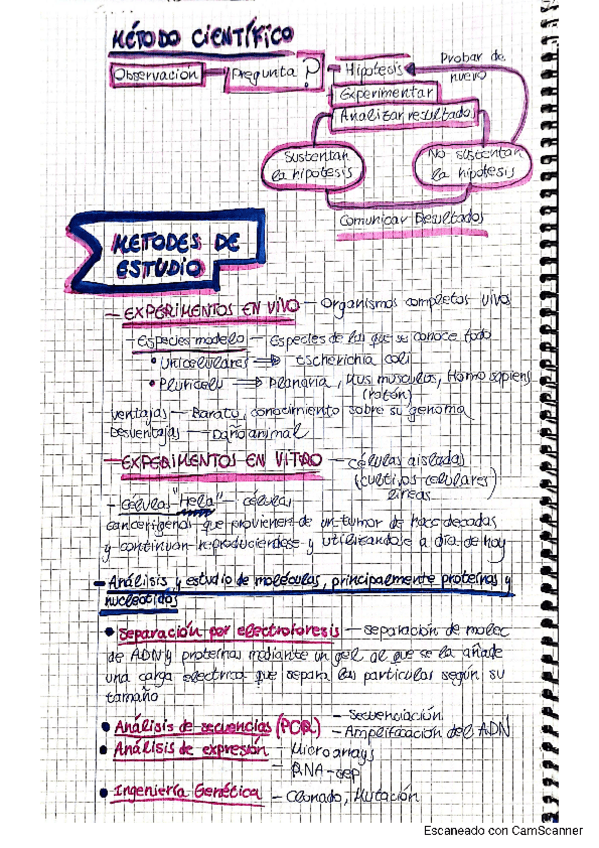 MÉTODO CIENTÍFICO
Observación Pregunta? Hipótesis Probar de
nuevo
Experimentar
Analizar resultados
Sustentan
la hipótesis
No sustentan
la hipótesis
Comunicar Resultados
METODES DE
ESTUDIO
- EXPERIMENTOS EN VIVO - Organismos completos vivos
- Especies modelo - Especies de las que se conoce todo
• Unicelulares => Escherichia coli
• Pluricelu => Planaria, Mus musculos, Homo sapiens
(ratón)
Ventajas - Baratu, conocimiento sobre su genoma
Desventajas - Daño animal
- EXPERIMENTOS EN VITRO - Células aisladas
(cultivos celulares)
líneas
- Células "Hela" - células
cancerígenas que provienen de un tumor de hace decadas
y continuan reproduciendose y utilizandose a día de hoy
- Análisis y estudio de moléculas, principalmente proteínas y
nucleótidos
• Separación por electroforesis - separación de molec
de ADN y proteínas mediante un gel al que se la añade
una carga electrica que separa las particulas según su
tamaño
• Análisis de secuencias (PCR) - Secuenciación
- Amplificación del ADN
• Análisis de expresión - Microarrays
- RNA-sep
• Ingeniería Genética - Clonado, Mutación
Escaneado con CamScanner